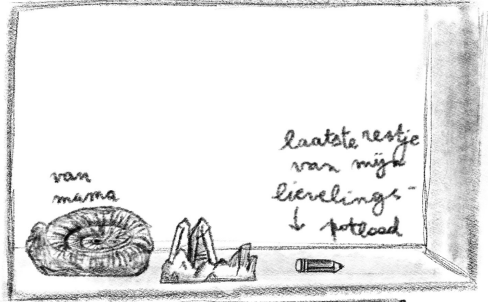 van
mama
laatste restje
van mijn
lievelings-
↓ potlood